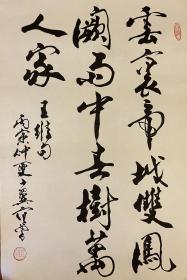 雲裏帝城雙鳳
闕雨中春樹萬
人家
王維句